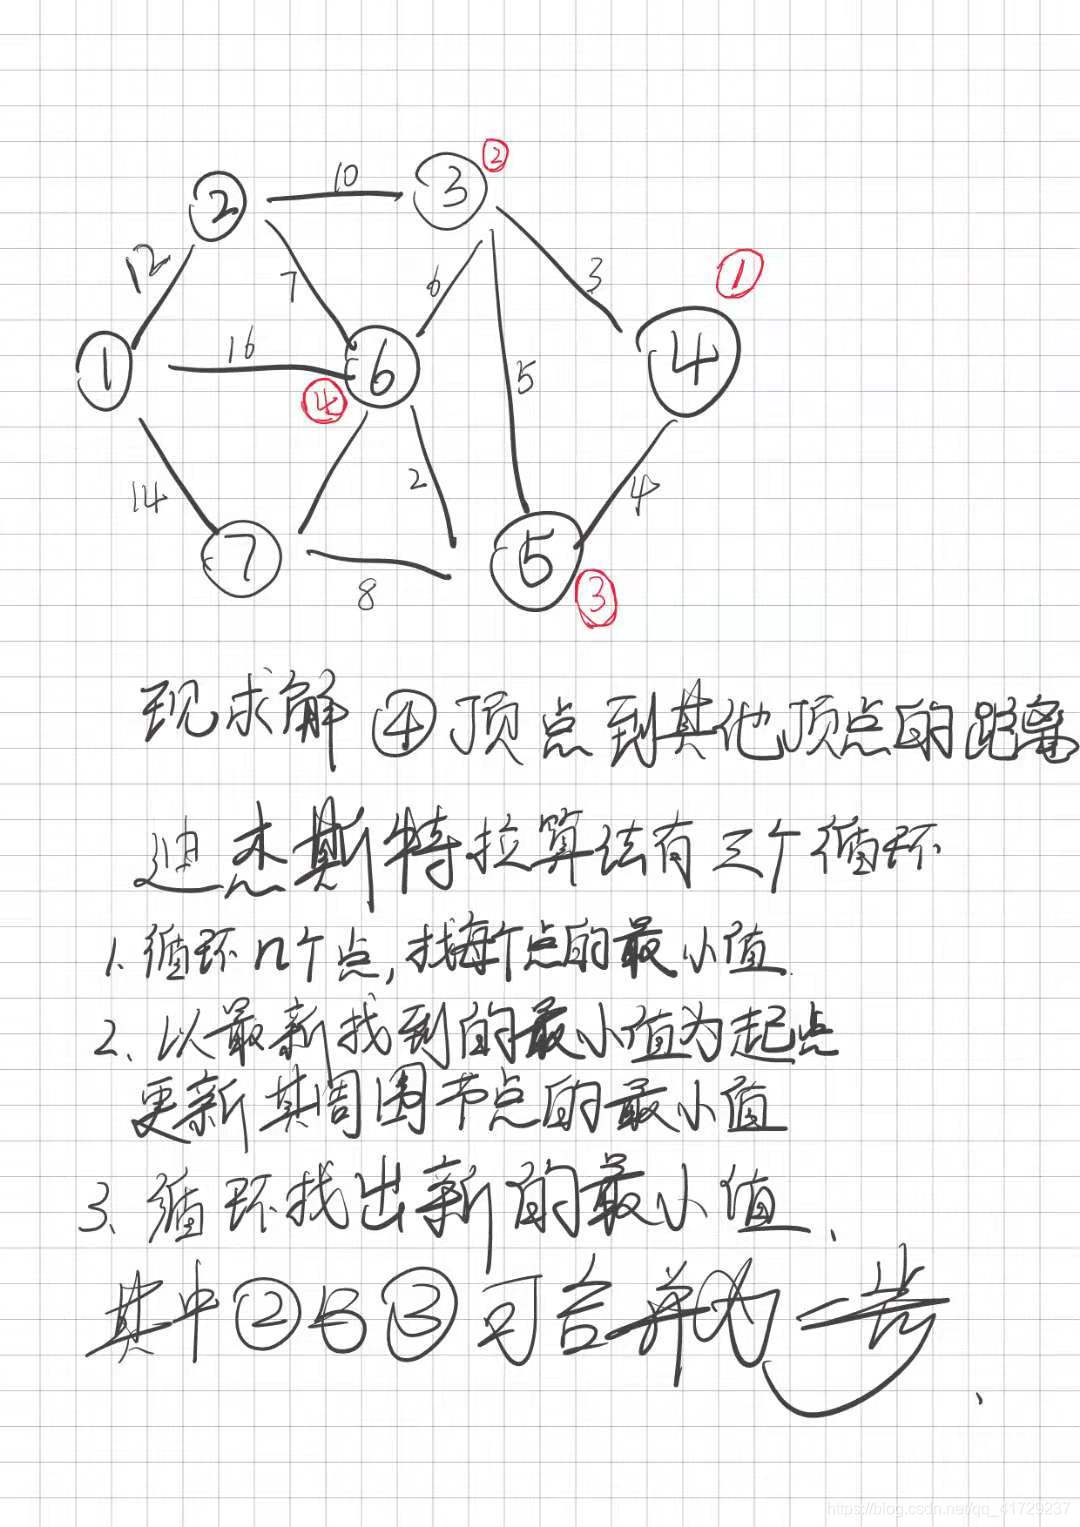 ②
10
2
3
12
7
6
3
①
16
1
6
4
④
5
14
2
4
7
5
8
③
现求解④顶点到其他顶点的距离
迪杰斯特拉算法有三个循环
1.循环n个点,找每个点的最小值.
2、以最新找到的最小值为起点
更新其周围节点的最小值
3、循环找出新的最小值、
其中②与③可合并为一步、
https://blog.csdn.net/qq_41729237